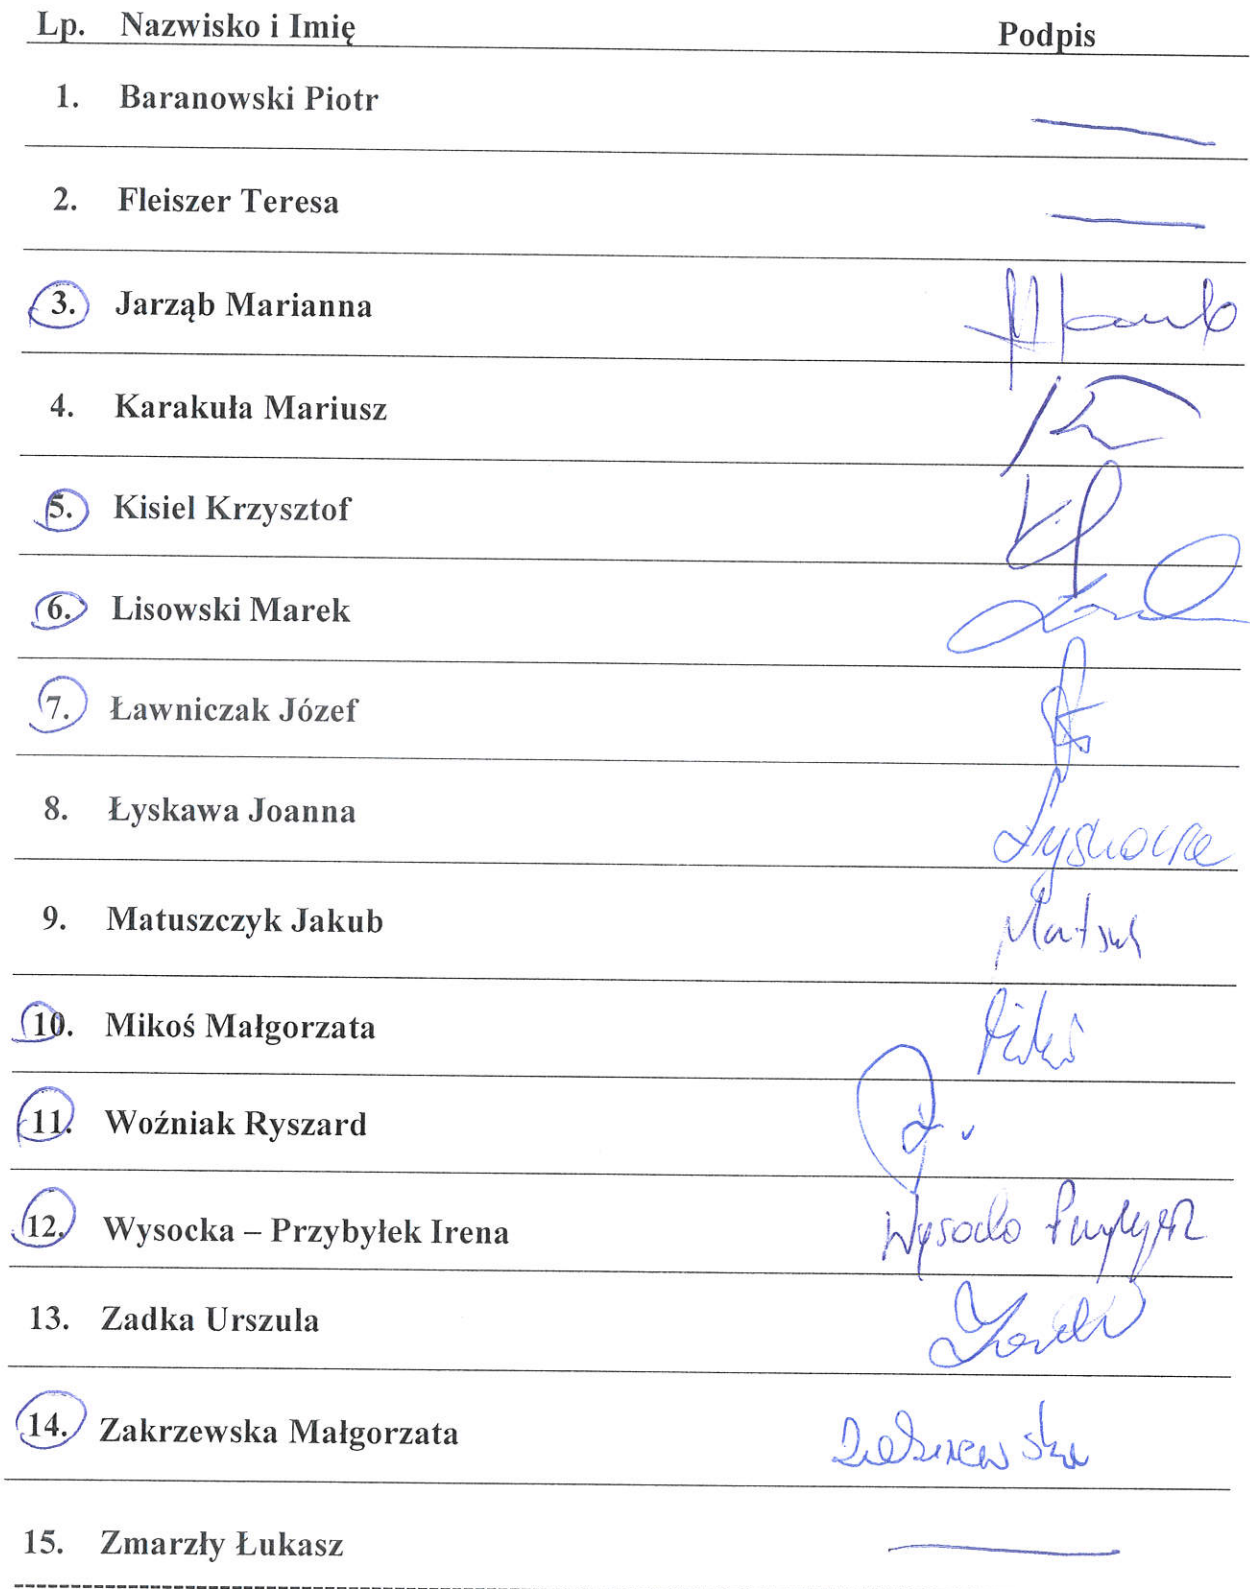 Lp. Nazwisko i Imię Podpis
1. Baranowski Piotr
2. Fleiszer Teresa
3. Jarząb Marianna
4. Karakuła Mariusz
5. Kisiel Krzysztof
6. Lisowski Marek
7. Ławniczak Józef
8. Łyskawa Joanna Łyskawa
9. Matuszczyk Jakub
10. Mikoś Małgorzata Mikoś
11. Woźniak Ryszard
12. Wysocka – Przybyłek Irena
13. Zadka Urszula
14. Zakrzewska Małgorzata Zakrzewska
15. Zmarzły Łukasz